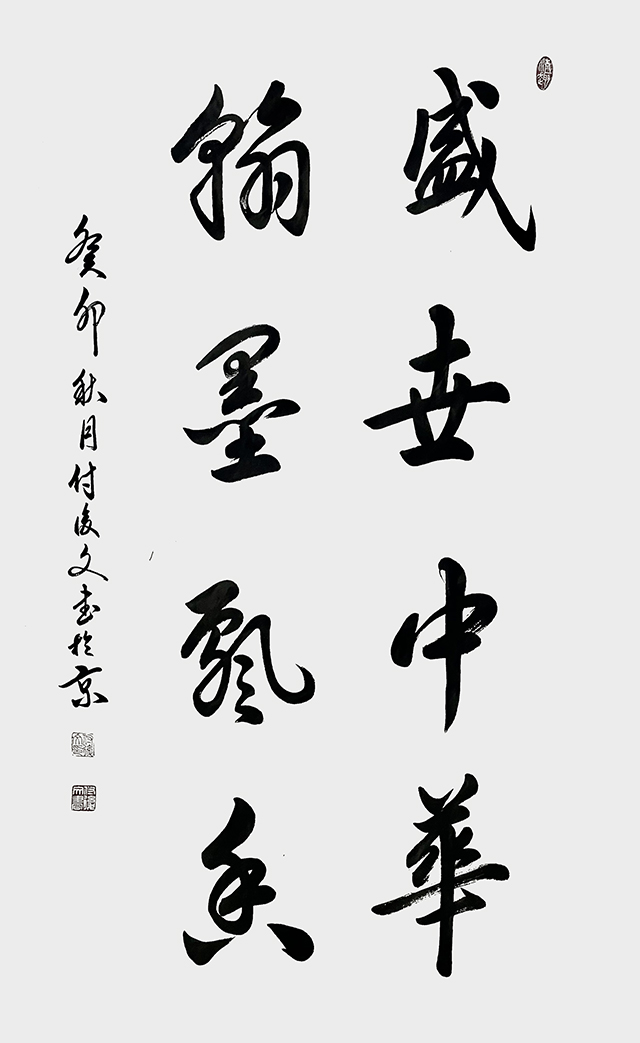 盛世中華
翰墨飄香
癸卯秋月付俊文书於京